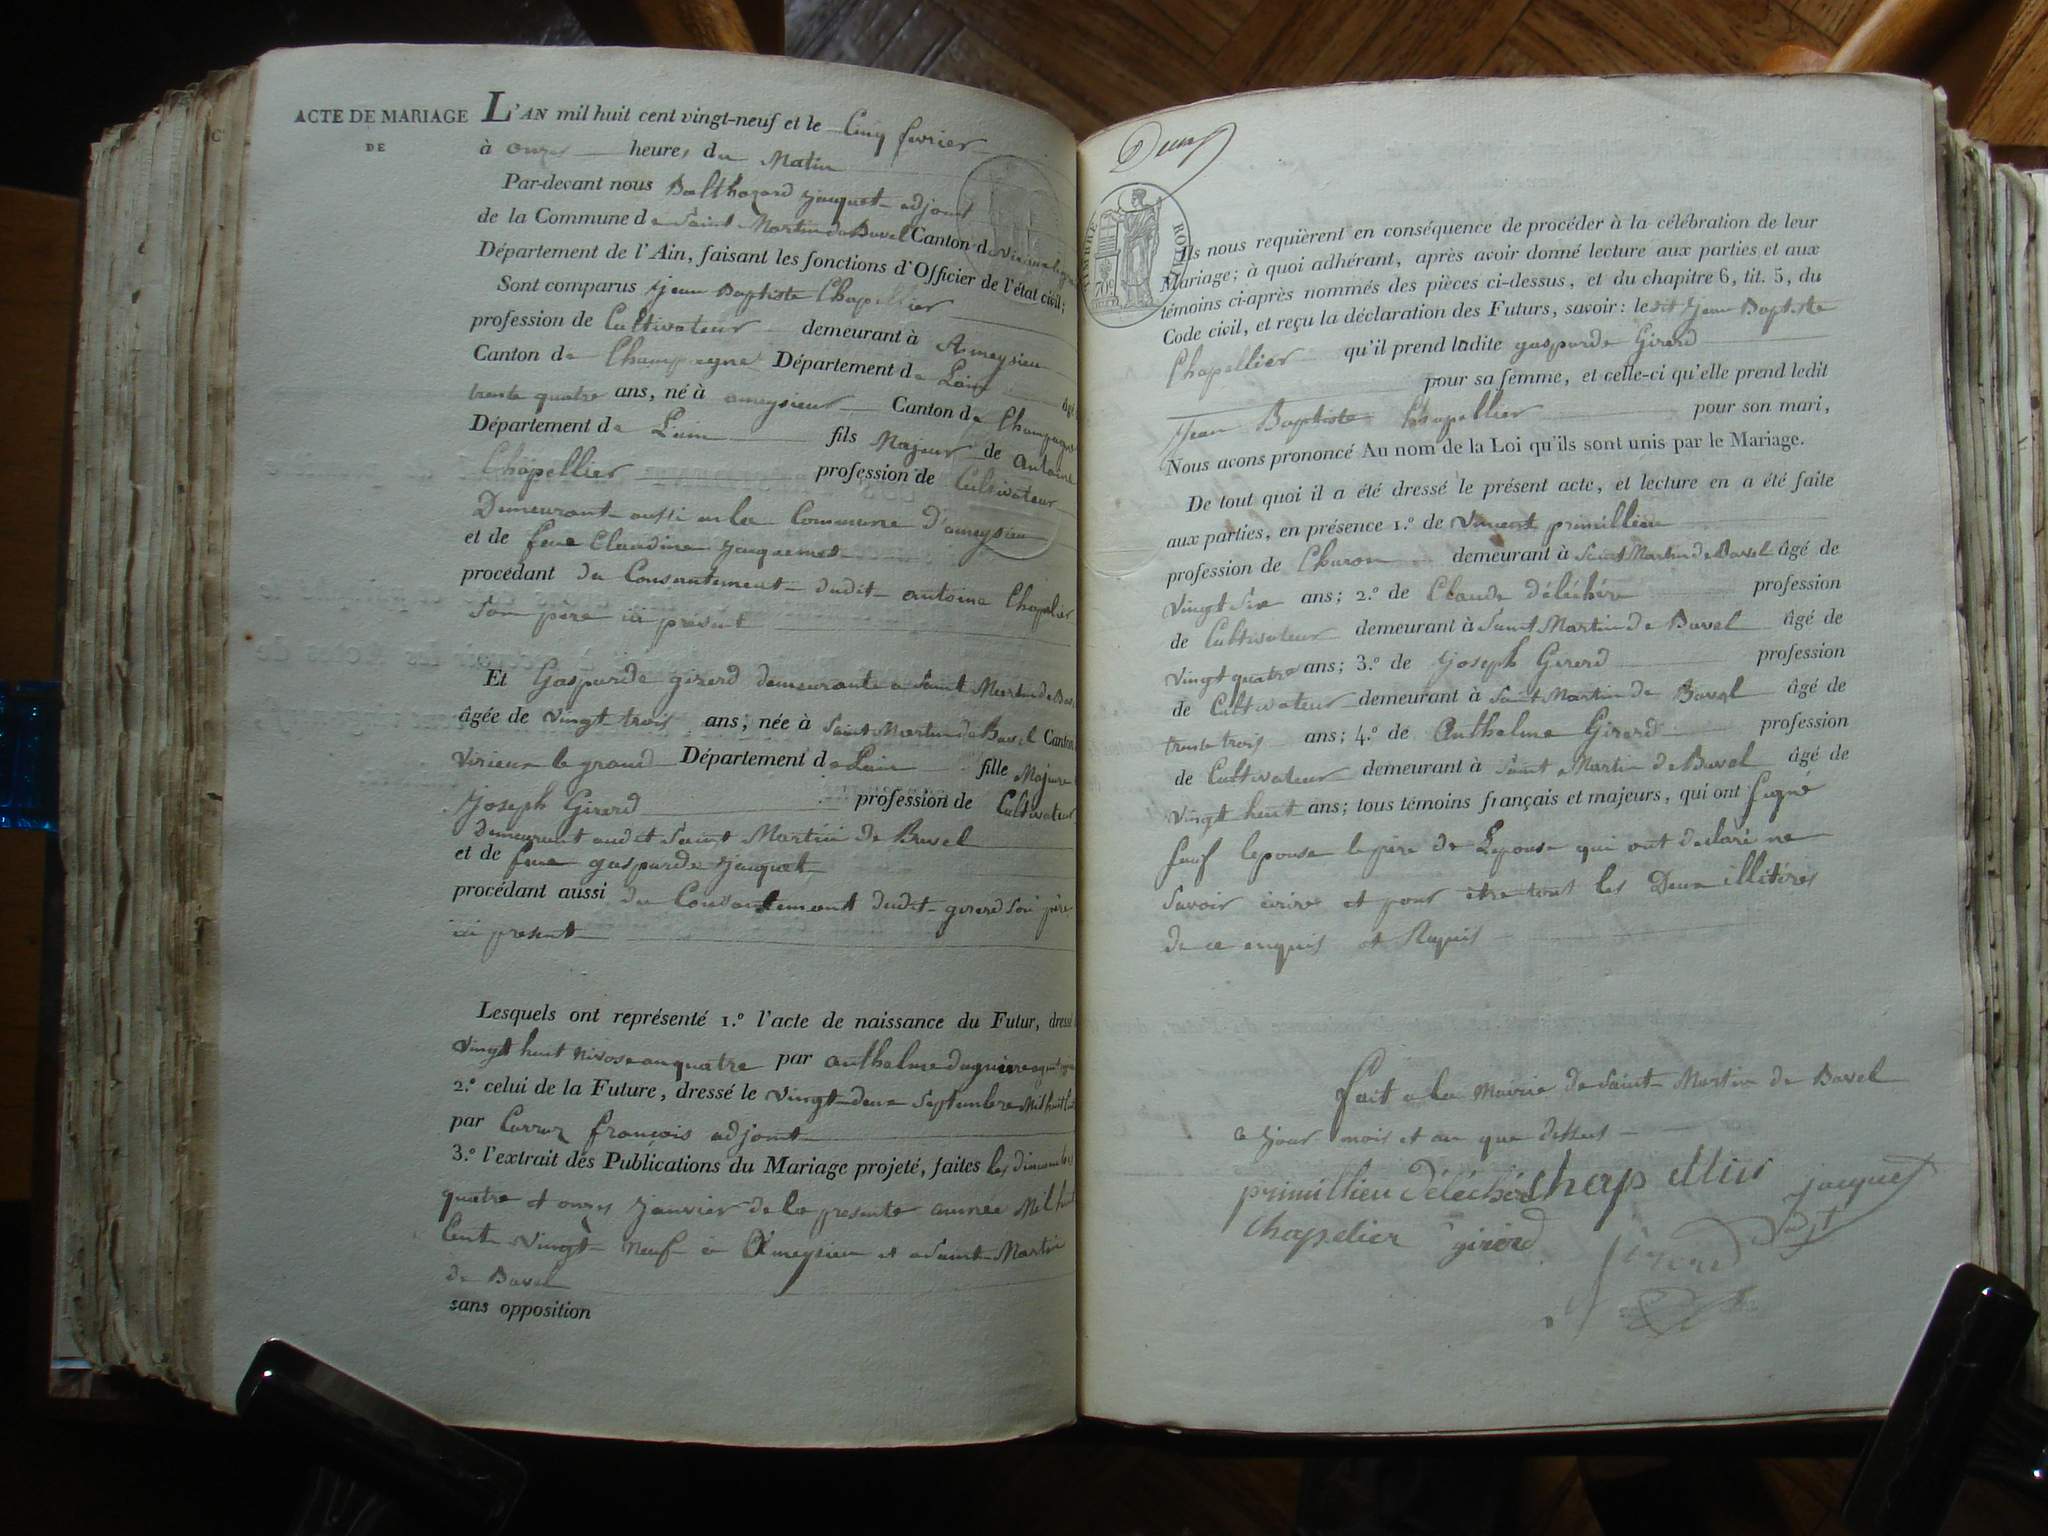 ACTE DE MARIAGE
DE
L'AN mil huit cent vingt-neuf et le Cinq fevrier
à onzes heures du Matin
Par-devant nous Balthazard jacquet adjoint
de la Commune de Saint Martin de Bavel Canton de Virieu le grand
Département de l'Ain, faisant les fonctions d'Officier de l'état civil;
Sont comparus jean Baptiste Chapellier
profession de Cultivateur demeurant à Ameysieu
Canton de Champagne Département de Lain âgé
trente quatre ans, né à ameysieur Canton de Champagne
Département de L'ain fils Majeur de antoine
Chapellier profession de Cultivateur
Demeurant aussi en la Commune D'ameysieu
et de feue Claudine jacquemet
procédant du Consentement dudit antoine Chapelier
Son père ici présent
Et Gasparde girerd demeurante a Saint Martin de Bavel
âgée de vingt trois ans, née à Saint Martin de Bavel Canton
virieux le grand Département de Lain fille Majeure
Joseph Girerd profession de Cultivateur
demeurant audit Saint Martin de Bavel
et de feue gasparde jacquet
procédant aussi du Consentement dudit girerd Son père
ici present
Lesquels ont représenté 1.º l'acte de naissance du Futur, dressé
vingt huit nivose an quatre par anthelme
2.º celui de la Future, dressé le vingt deux Septembre Mil huit Cent
par Carrur françois adjoint
3.º l'extrait des Publications du Mariage projeté, faites les dimanches
quatre et onzes janvier de la presente année Mil huit
Cent vingt neuf à Ameysieu et a Saint Martin
de Bavel
sans opposition
Deux
TIMBRE ROYAL
70c
Ils nous requièrent en conséquence de procéder à la célébration de leur
Mariage; à quoi adhérant, après avoir donné lecture aux parties et aux
témoins ci-après nommés des pièces ci-dessus, et du chapitre 6, tit. 5, du
Code civil, et reçu la déclaration des Futurs, savoir: ledit Jean Baptiste
Chapellier qu'il prend ladite gasparde Girerd
pour sa femme, et celle-ci qu'elle prend ledit
Jean Baptiste Chapellier pour son mari,
Nous avons prononcé Au nom de la Loi qu'ils sont unis par le Mariage.
De tout quoi il a été dressé le présent acte, et lecture en a été faite
aux parties, en présence 1.º de vincent primillieu
profession de Charon demeurant à Saint Martin de Bavel âgé de
vingt Six ans; 2.º de Claude déléchére profession
de Cultivateur demeurant à Saint Martin de Bavel âgé de
vingt quatre ans; 3.º de Joseph Girerd profession
de Cultivateur demeurant à Saint Martin de Bavel âgé de
trente trois ans; 4.º de Anthelme Girerd profession
de Cultivateur demeurant à Saint Martin de Bavel âgé de
vingt huit ans; tous témoins français et majeurs, qui ont signé
Sauf lepouse le père de Lepouse qui ont declaré ne
Savoir écrire et pour etre tous les Deux illitérés
de ce enquis et Requis
fait a la Mairie de Saint Martin de Bavel
ce jour mois et an que dessus
primillieu déléchére Chapellier jacquet
chapelier girerd girerd adjt